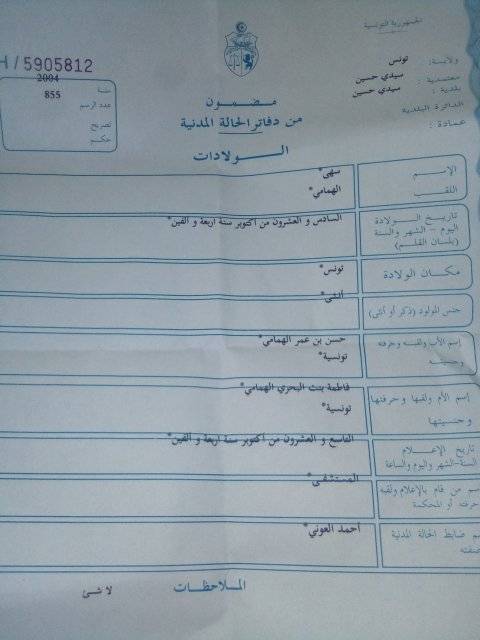 الجمهورية التونسية
H/5905812
ولاية: تونس
معتمدية: سيدي حسين
بلدية: سيدي حسين
الدائرة البلدية
عمادة:
سنة 2004
عدد الرسم 855
تصريح
حكم
مضمون
من دفاتر الحالة المدنية
الولادات
الإسم سهى*
اللقب الهمامي*
تاريخ الولادة
اليوم - الشهر والسنة السادس و العشرون من أكتوبر سنة اربعة و الفين*
(بلسان القلم)
مكان الولادة تونس*
جنس المولود (ذكر أو أنثى) أنثى*
إسم الأب ولقبه وحرفته حسن بن عمر الهمامي*
وجنسيته تونسية*
إسم الأم ولقبها وحرفتها فاطمة بنت البحري الهمامي*
وجنسيتها تونسية*
تاريخ الإعلام
السنة-الشهر واليوم والساعة التاسع و العشرون من أكتوبر سنة اربعة و الفين*
إسم من قام بالإعلام ولقبه المستشفى*
حرفته أو المحكمة
إسم ضابط الحالة المدنية أحمد العوني*
صفته
الملاحظات لا شئ